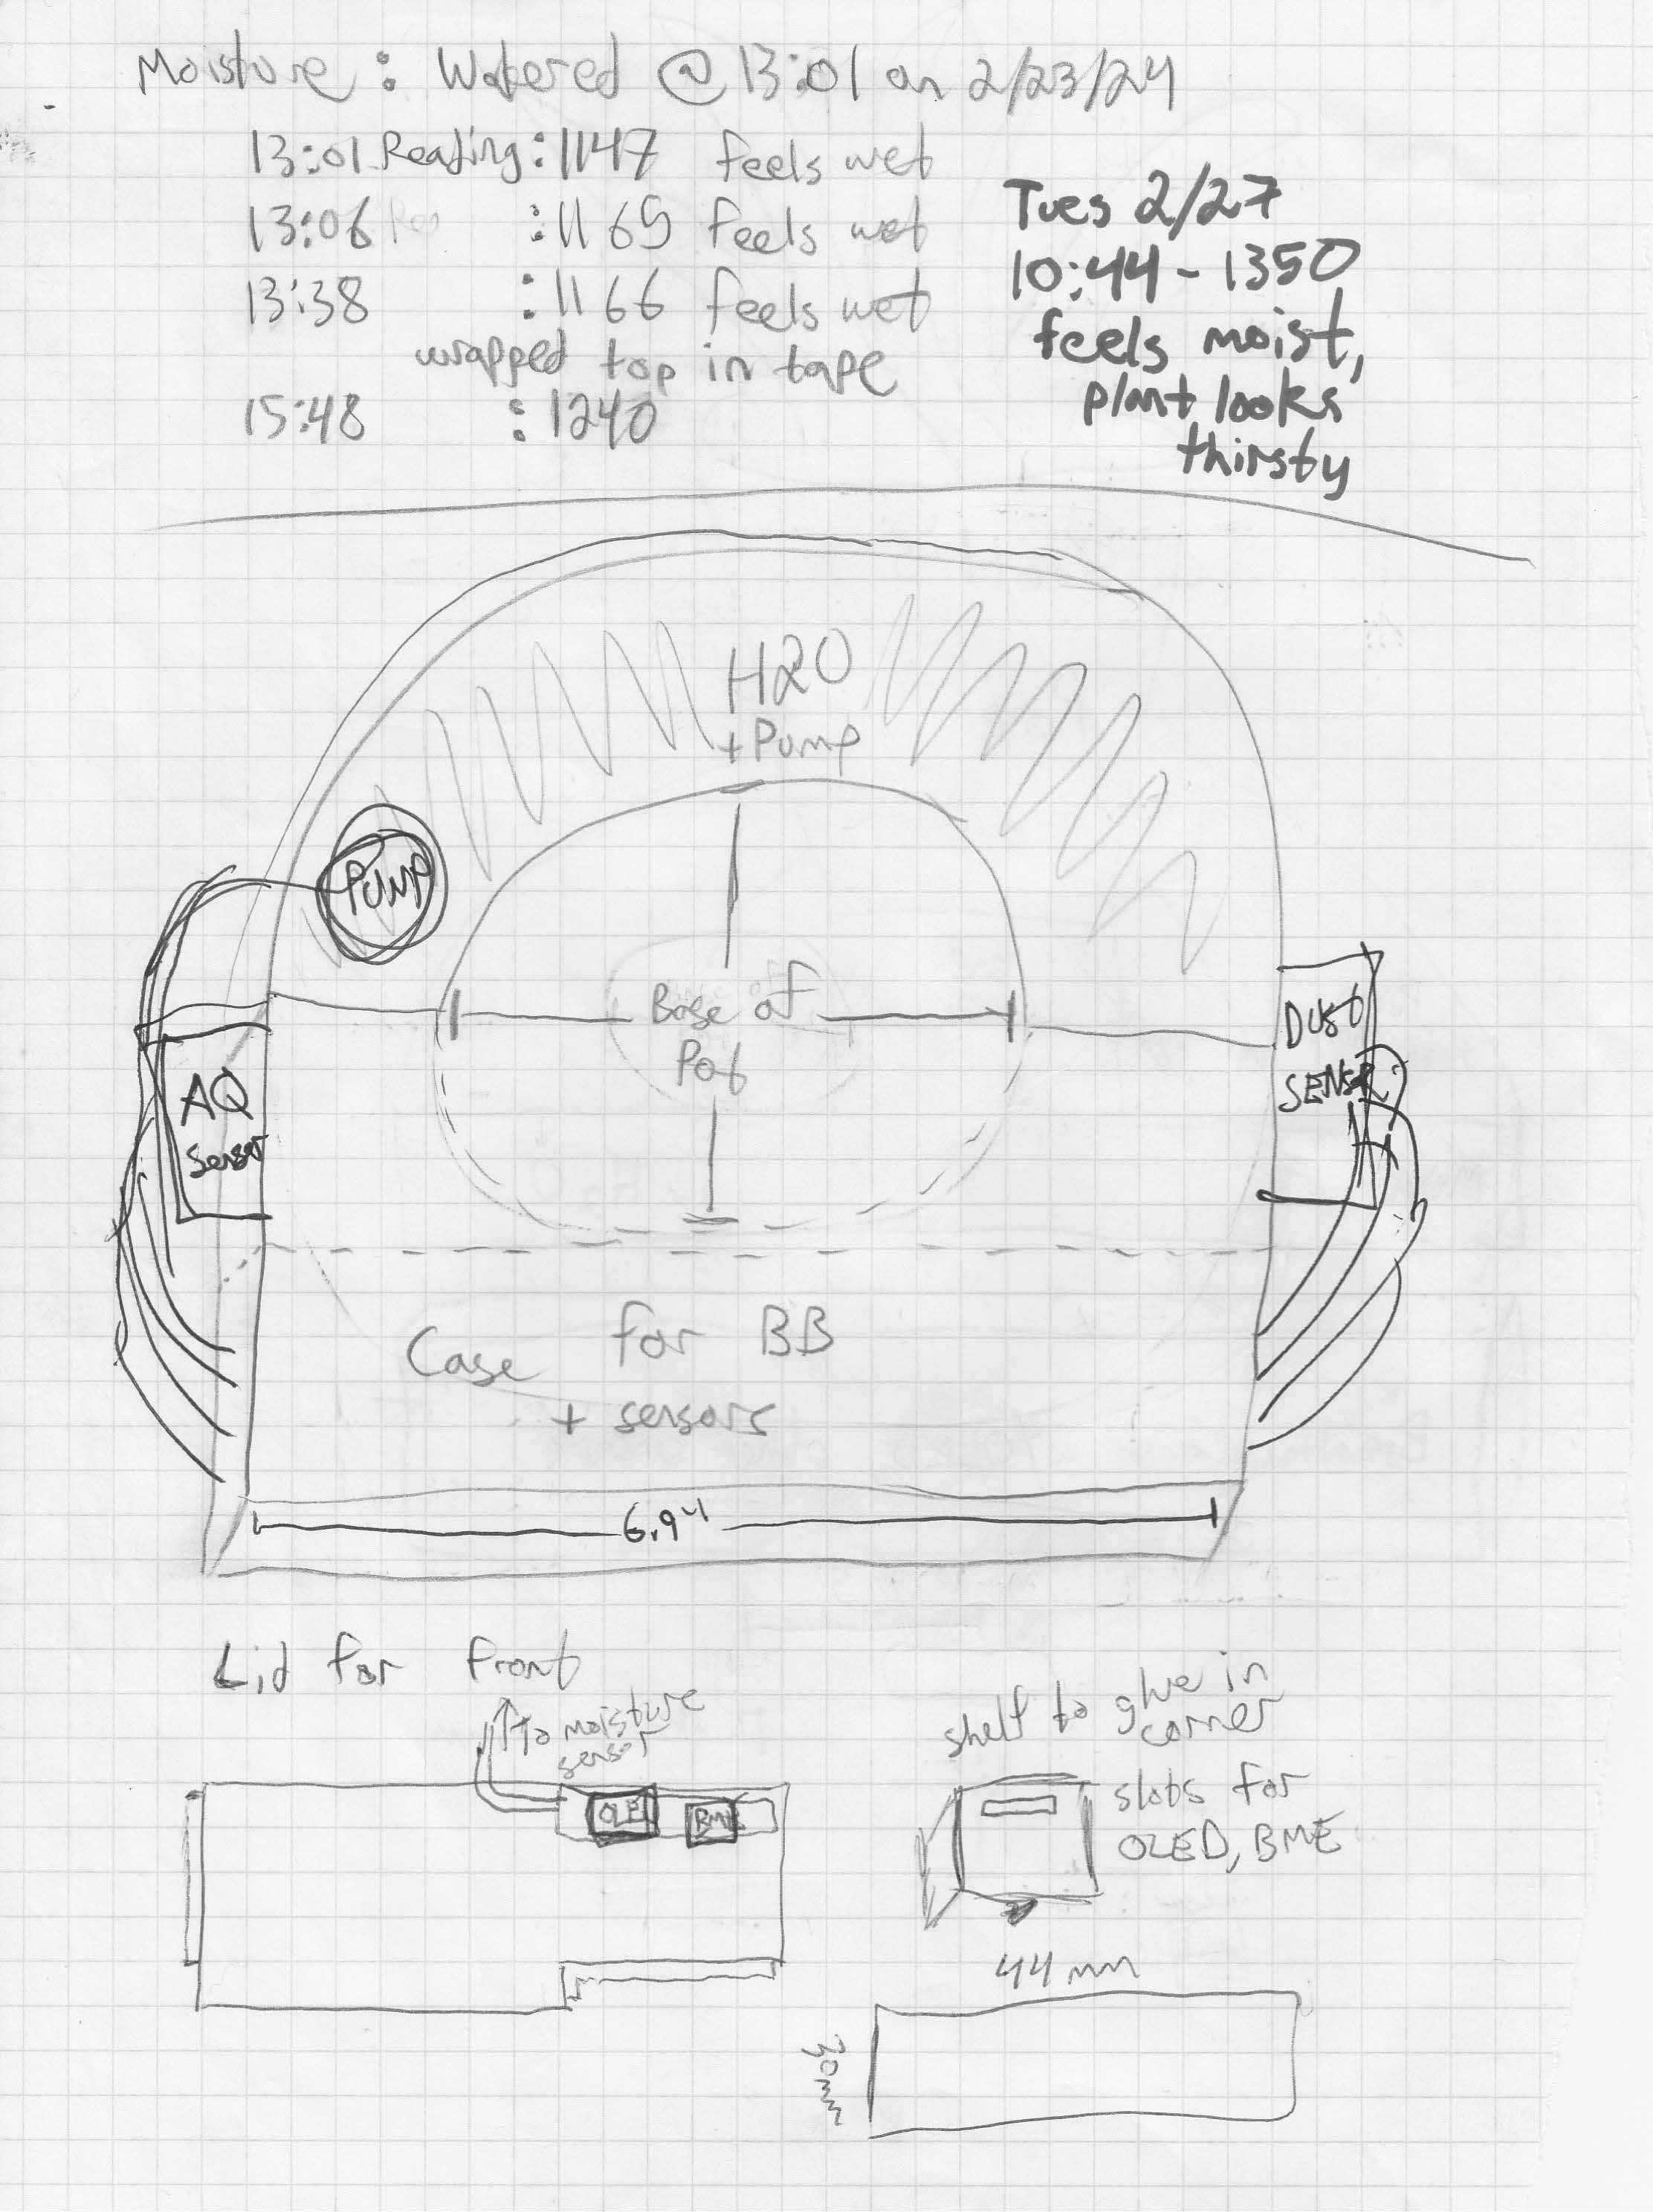 Moisture : Watered @ 13:01 on 2/23/24
13:01 Reading : 1147 feels wet
13:06 : 1165 feels wet
13:38 : 1166 feels wet
wrapped top in tape
15:48 : 1240
Tues 2/27
10:44 - 1350
feels moist,
plant looks
thirsty
H2O
+ Pump
PUMP
Base of
Pot
AQ
Sensor
DUST
SENSR
Case for BB
+ sensors
6.94
Lid for front
to moisture
sensor
OLED
BME
shelf to glue in
corner
slots for
OLED, BME
44 mm
30mm